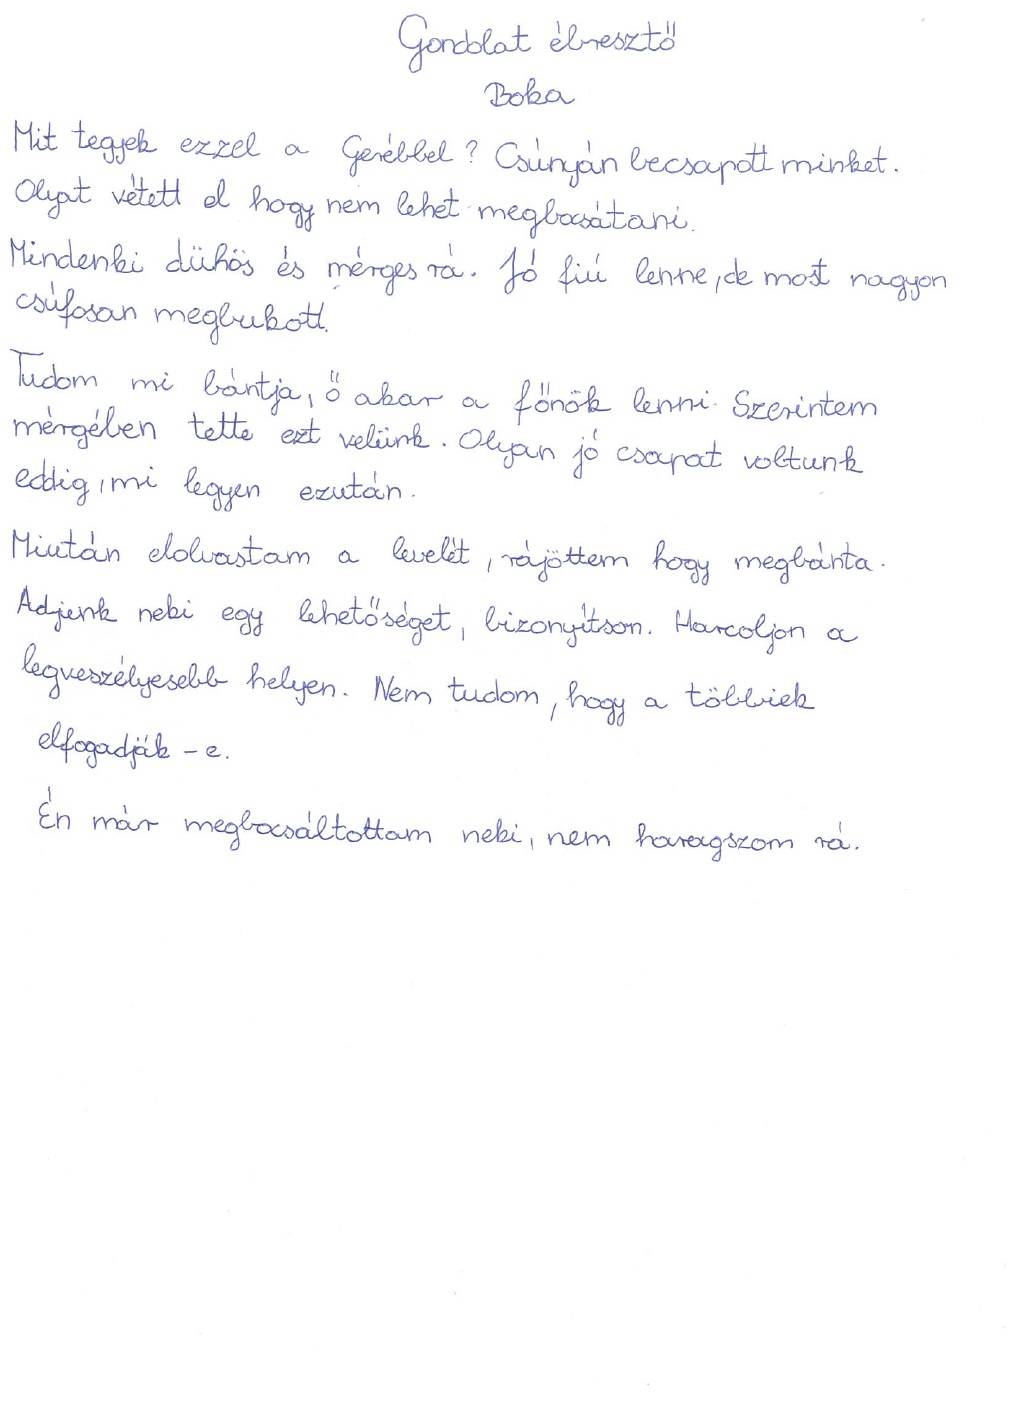 Gondolat ébresztő
Boka
Mit tegyek ezzel a Gerébbel? Csúnyán becsapott minket.
Olyat vétett el hogy nem lehet megbocsátani.
Mindenki dühös és mérges rá. Jó fiú lenne, de most nagyon
csúfosan megbukott.
Tudom mi bántja, ő akar a főnök lenni. Szerintem
mérgében tette ezt velünk. Olyan jó csapat voltunk
eddig, mi legyen ezután.
Miután elolvastam a levelét, rájöttem hogy megbánta.
Adjenk neki egy lehetőséget, bizonyítson. Harcoljon a
legveszélyesebb helyen. Nem tudom, hogy a többiek
elfogadják -e.
Én már megbocsáltottam neki, nem haragszom rá.